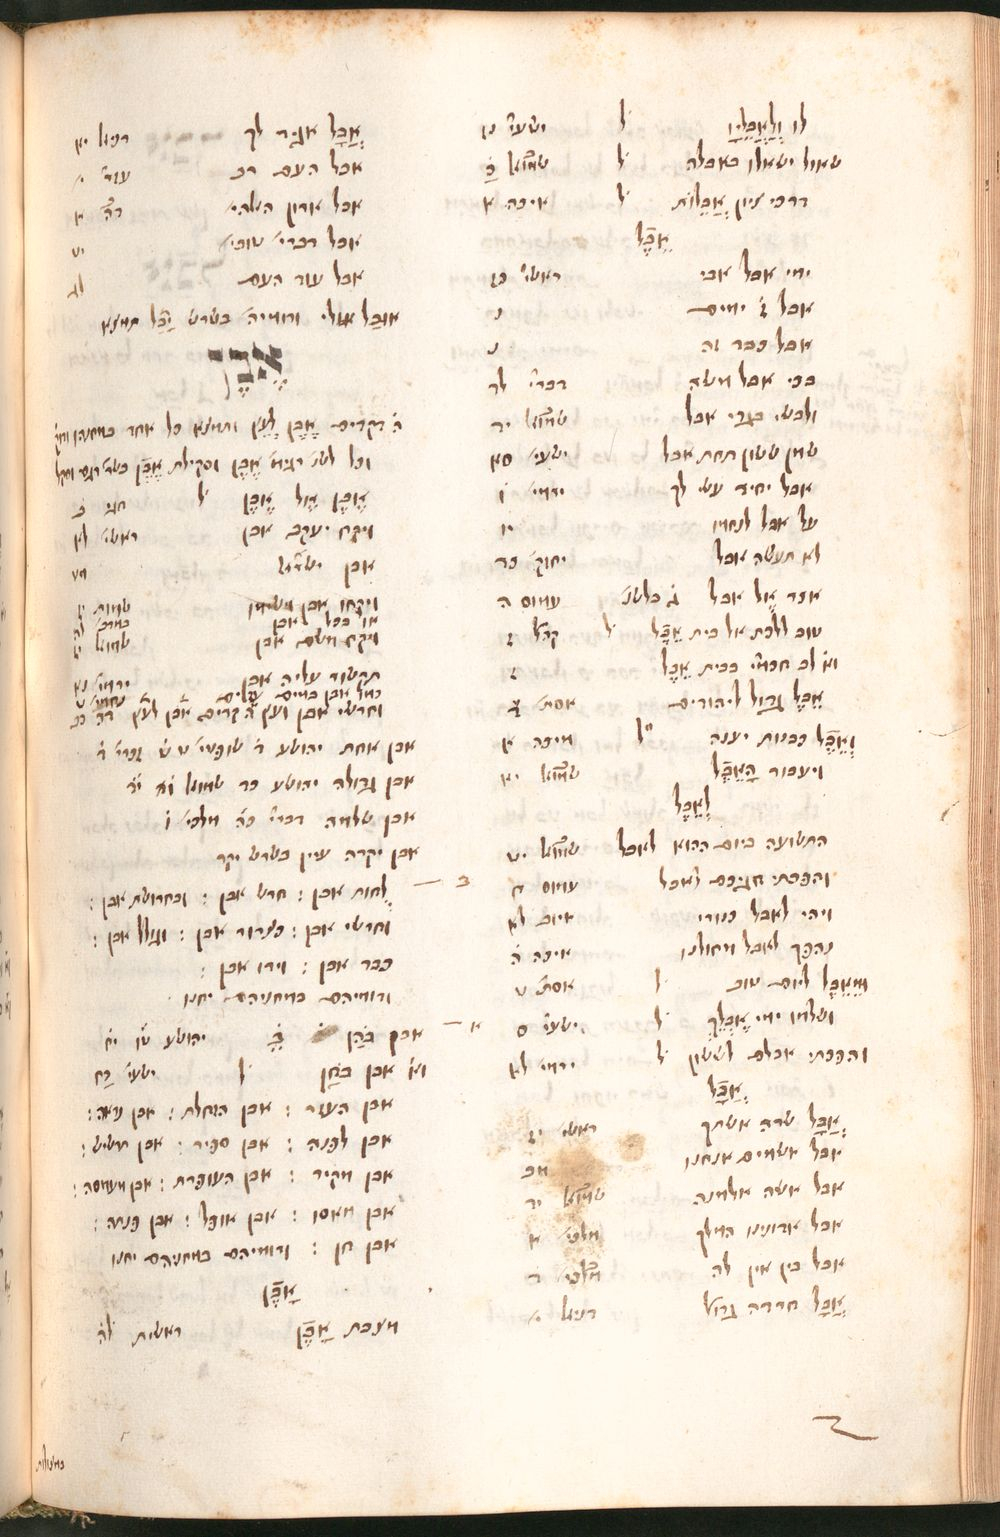 לו וְלַאֲבֵלָיו ל ישעי׳ נז
שאול ישאלו באבלה ל שמואל כ
דרכי ציון אֲבֵלוֹת ל איכה א
אֵבֶל
ימי אבל אבי ראשי׳ כז
אבל ז׳ ימים נ
אבל כבד זה נ
בכי אבל משה דברי׳ לד
ולבשי בגדי אבל שמואל יד
שמן ששון תחת אבל ישעי׳ סא
אבל יחיד עשי לך ירמי׳ ו
על אבל לנחמו יו
לא תעשה אבל יחזק׳ כד
אכר אל אבל עמוס ה
טוב ללכת אל בית אֵבֶל ל קהל׳ ז
לב חכמי׳ בבית אֵבֶל ז
אֵבֶל גדול ליהודים אסת׳ ד
וְאֵבֶל כבנות יענה ל מיכה א
ויעבור הָאֵבֶל שמואל יא
לְאֵבֶל
התשועה ביום ההוא לאבל שמואל יט
והפכתי חגיכם לאבל עמוס ח
ויהי לאבל כנורי איוב ל
נהפך לאבל מחולנו איכה ה
וּמֵאֵבֶל ליום טוב ל אסת׳ ט
ושלמו ימי אֶבְלֵךְ ל ישעי׳ ס
והפכתי אבלם לששון ל ירמי׳ לא
אֲבָל
אֲבָל שרה אשתך ראשי׳ יז
אבל אשמים אנחנו מב
אבל אשה אלמנה שמואל יד
אבל אדונינו המלך מלכי׳ א
אבל בן אין לה מלכי׳ ד
אֲבָל חרדה גדולה דניאל י
אֲבָל אגיד לך דניאל י
אבל העם רב עזר׳ י
אבל ארון האלהי׳ דה׳ א
אבל דברי׳ טובי׳ יט
אבל עוד העם לג
אובל אולי ודומיה בשרש יבל תמצא
אֶבֶן
ה׳ דקדים אֶבֶן לָעֵץ ותמצא כל אחד במחנהו
וכל לשני׳ רגימ׳ אֶבֶן וסקילת אֶבֶן
אֶבֶן אֶל אֶבֶן ל חגי ב
ויקח יעקב אבן ראשי׳ לא
אבן ישראל מט
ויקחו אבן וישימו שמות יז
או בכל אבן במדב׳ לה
ויקח חשם אבן שמואל
תקשור עליה אבן ירמי׳ נא
כמו אבן במים עזים נחמי׳ ט
וחרשי אבן ועץ
אבן אחת יהושע ד שופטי׳ ט
אבן גדולה יהושע כד שמואל
אבן שלמה דברי׳ כה מלכי׳ ו
אבן יקרה עיין בשרש יקר
לֻחות אבן : חרש אבן : ובחרושת אבן :
וחרשי אבן : כצרור אבן : וגולל אבן :
כבד אבן : וידו אבן :
ודומיהם במחניהם יחנו
אבן בֹּהַן יהושע טו יח
אבן בֹּחַן ל ישעי׳ כח
אבן העזר : אבן הזוחלת : אבן נגה :
אבן לפנה : אבן ספיר : אבן תרשיש :
אבן מקיר : אבן העופרת : אבן מעמסה :
אבן מאסו : אבן אופל : אבן פנתה :
אבן חן : ודומיהם במחניהם יחנו
אָבֶן
מצבת אָבֶן ראשית לה